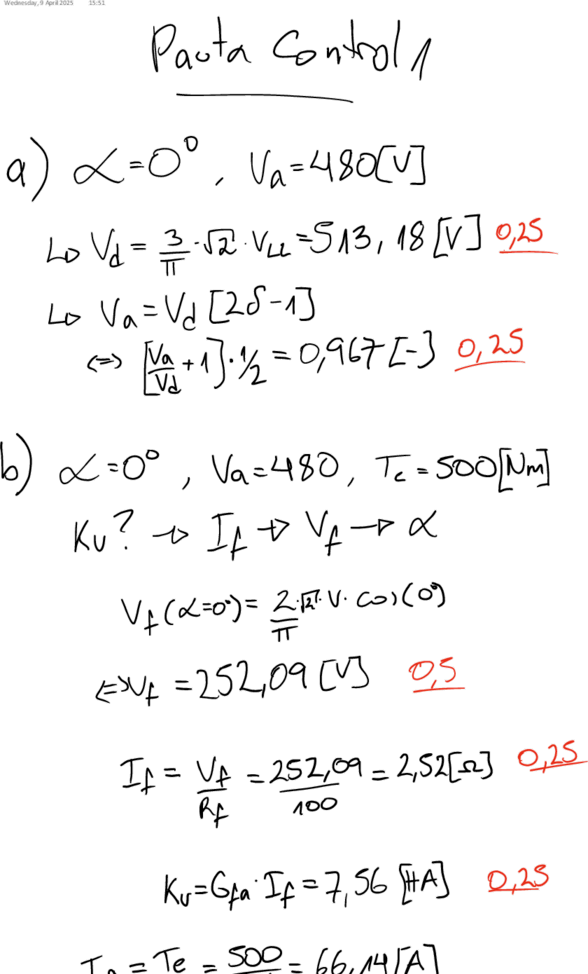 Wednesday, 9 April 2025 15:51
Pauta Control 1
a) α=0°, Va=480[V]
↳ Vd = 3/π · √2 · VLL = 513,18 [V] 0,25
↳ Va = Vd [2δ-1]
<=> [Va/Vd + 1] · 1/2 = 0,967 [-] 0,25
b) α=0°, Va=480, Tc=500[Nm]
Kv? → If → Vf → α
Vf(α=0°) = 2·√2·V·cos(0°)/π
<=> Vf = 252,09 [V] 0,5
If = Vf/Rf = 252,09/100 = 2,52[Ω] 0,25
Kv = Gfa · If = 7,56 [HA] 0,25
= Te = 500 = 66,14[A]